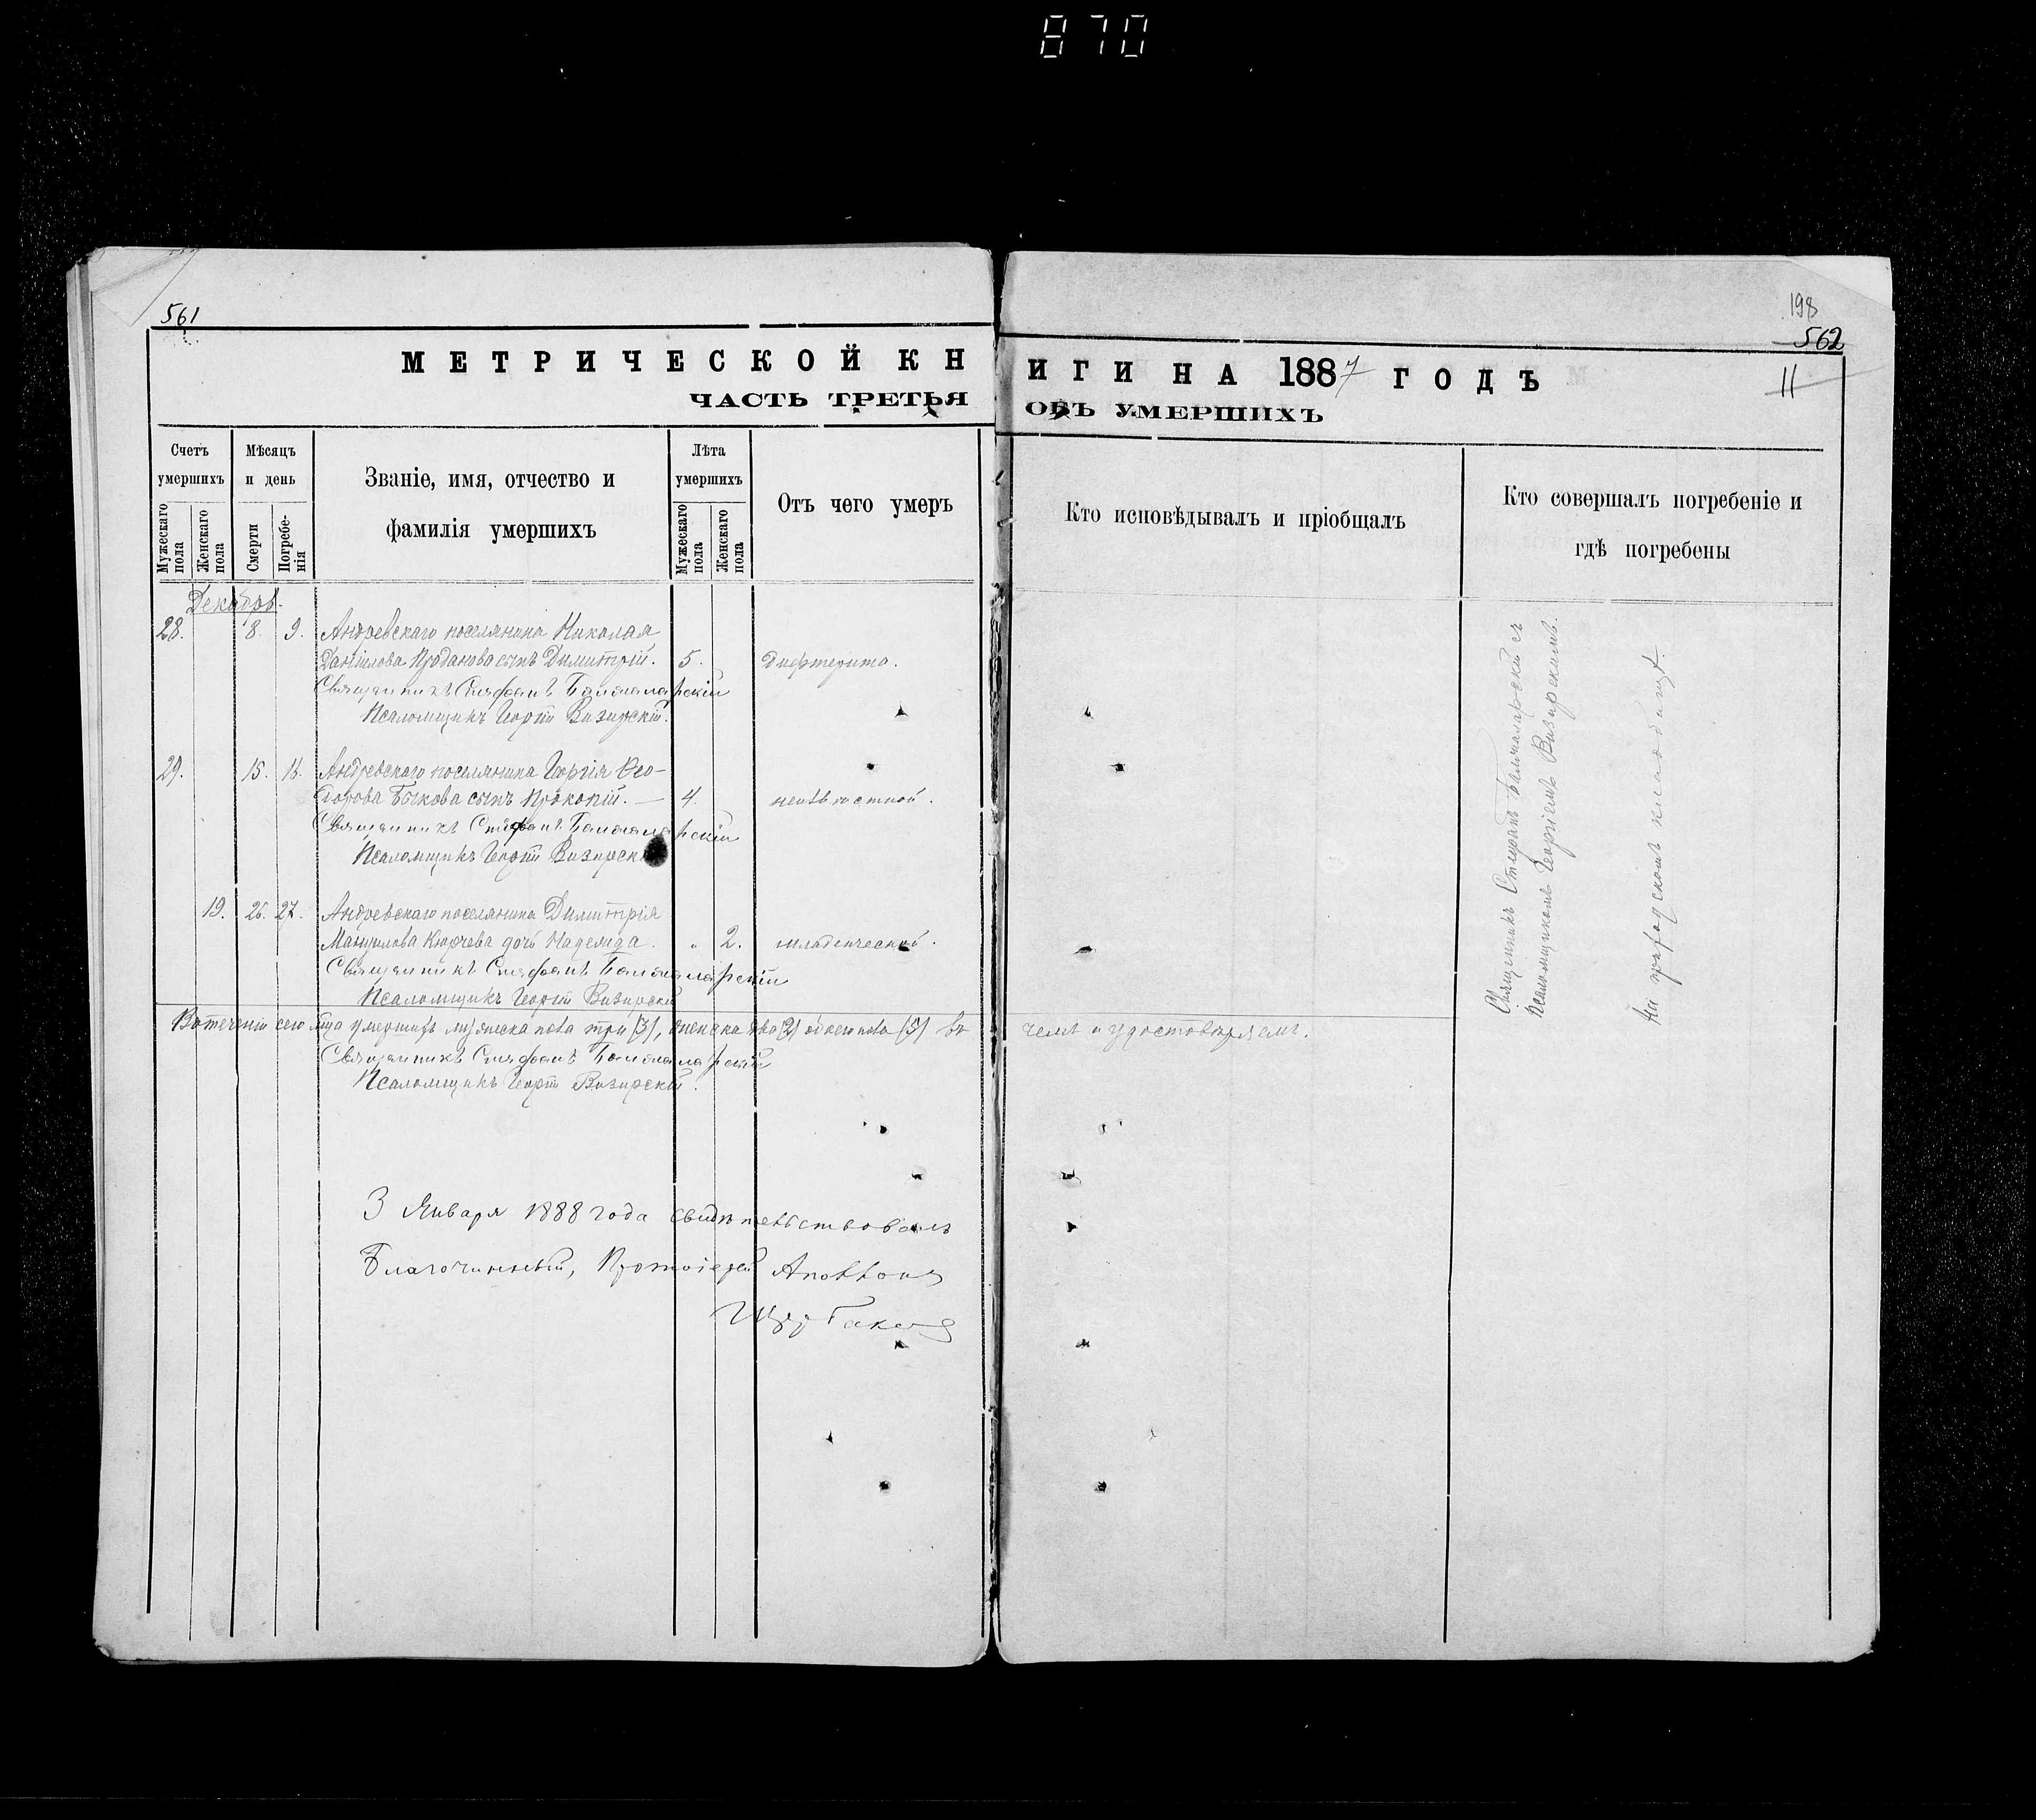 870
561
198
562
11
МЕТРИЧЕСКОЙ КНИГИ НА 1887 ГОДЪ
ЧАСТЬ ТРЕТЬЯ ОБЪ УМЕРШИХЪ
Счетъ умершихъ
Мужескаго пола
Женскаго пола
Мѣсяцъ и день
Смерти
Погребенія
Званіе, имя, отчество и
фамилія умершихъ
Лѣта умершихъ
Мужескаго пола
Женскаго пола
Отъ чего умеръ
Кто исповѣдывалъ и пріобщалъ
Кто совершалъ погребеніе и
гдѣ погребены
Декабрь.
28. 8. 9. Андреевскаго поселянина Николая
Даніилова Проданова сынъ Димитрій. 5. дифтерита.
Священникъ Стефанъ
Псаломщикъ Георгій Визирскій.
29. 15. 16. Андреевскаго поселянина Георгія Ѳео-
дорова Бычкова сынъ Прокопій. — 4. неизвѣстной.
Священникъ Стефанъ
Псаломщикъ Георгій Визирскій
19. 26. 27. Андреевскаго поселянина Димитрія
Мануилова Кюрчева дочь Надежда. „ 2. младенческой.
Священникъ Стефанъ
Псаломщикъ Георгій Визирскій
Въ теченіи сего м-ца умершихъ мужеска пола три (3), женска два (2) обоего пола (5) въ чемъ и удостовѣряемъ.
Священникъ Стефанъ
Псаломщикъ Георгій Визирскій.
3 Января 1888 года свидѣтельствовалъ
Благочинный, Протоіерей
Священникъ Стефанъ съ
Псаломщикомъ Георгіемъ Визирскимъ.
На приходскомъ кладбищѣ.